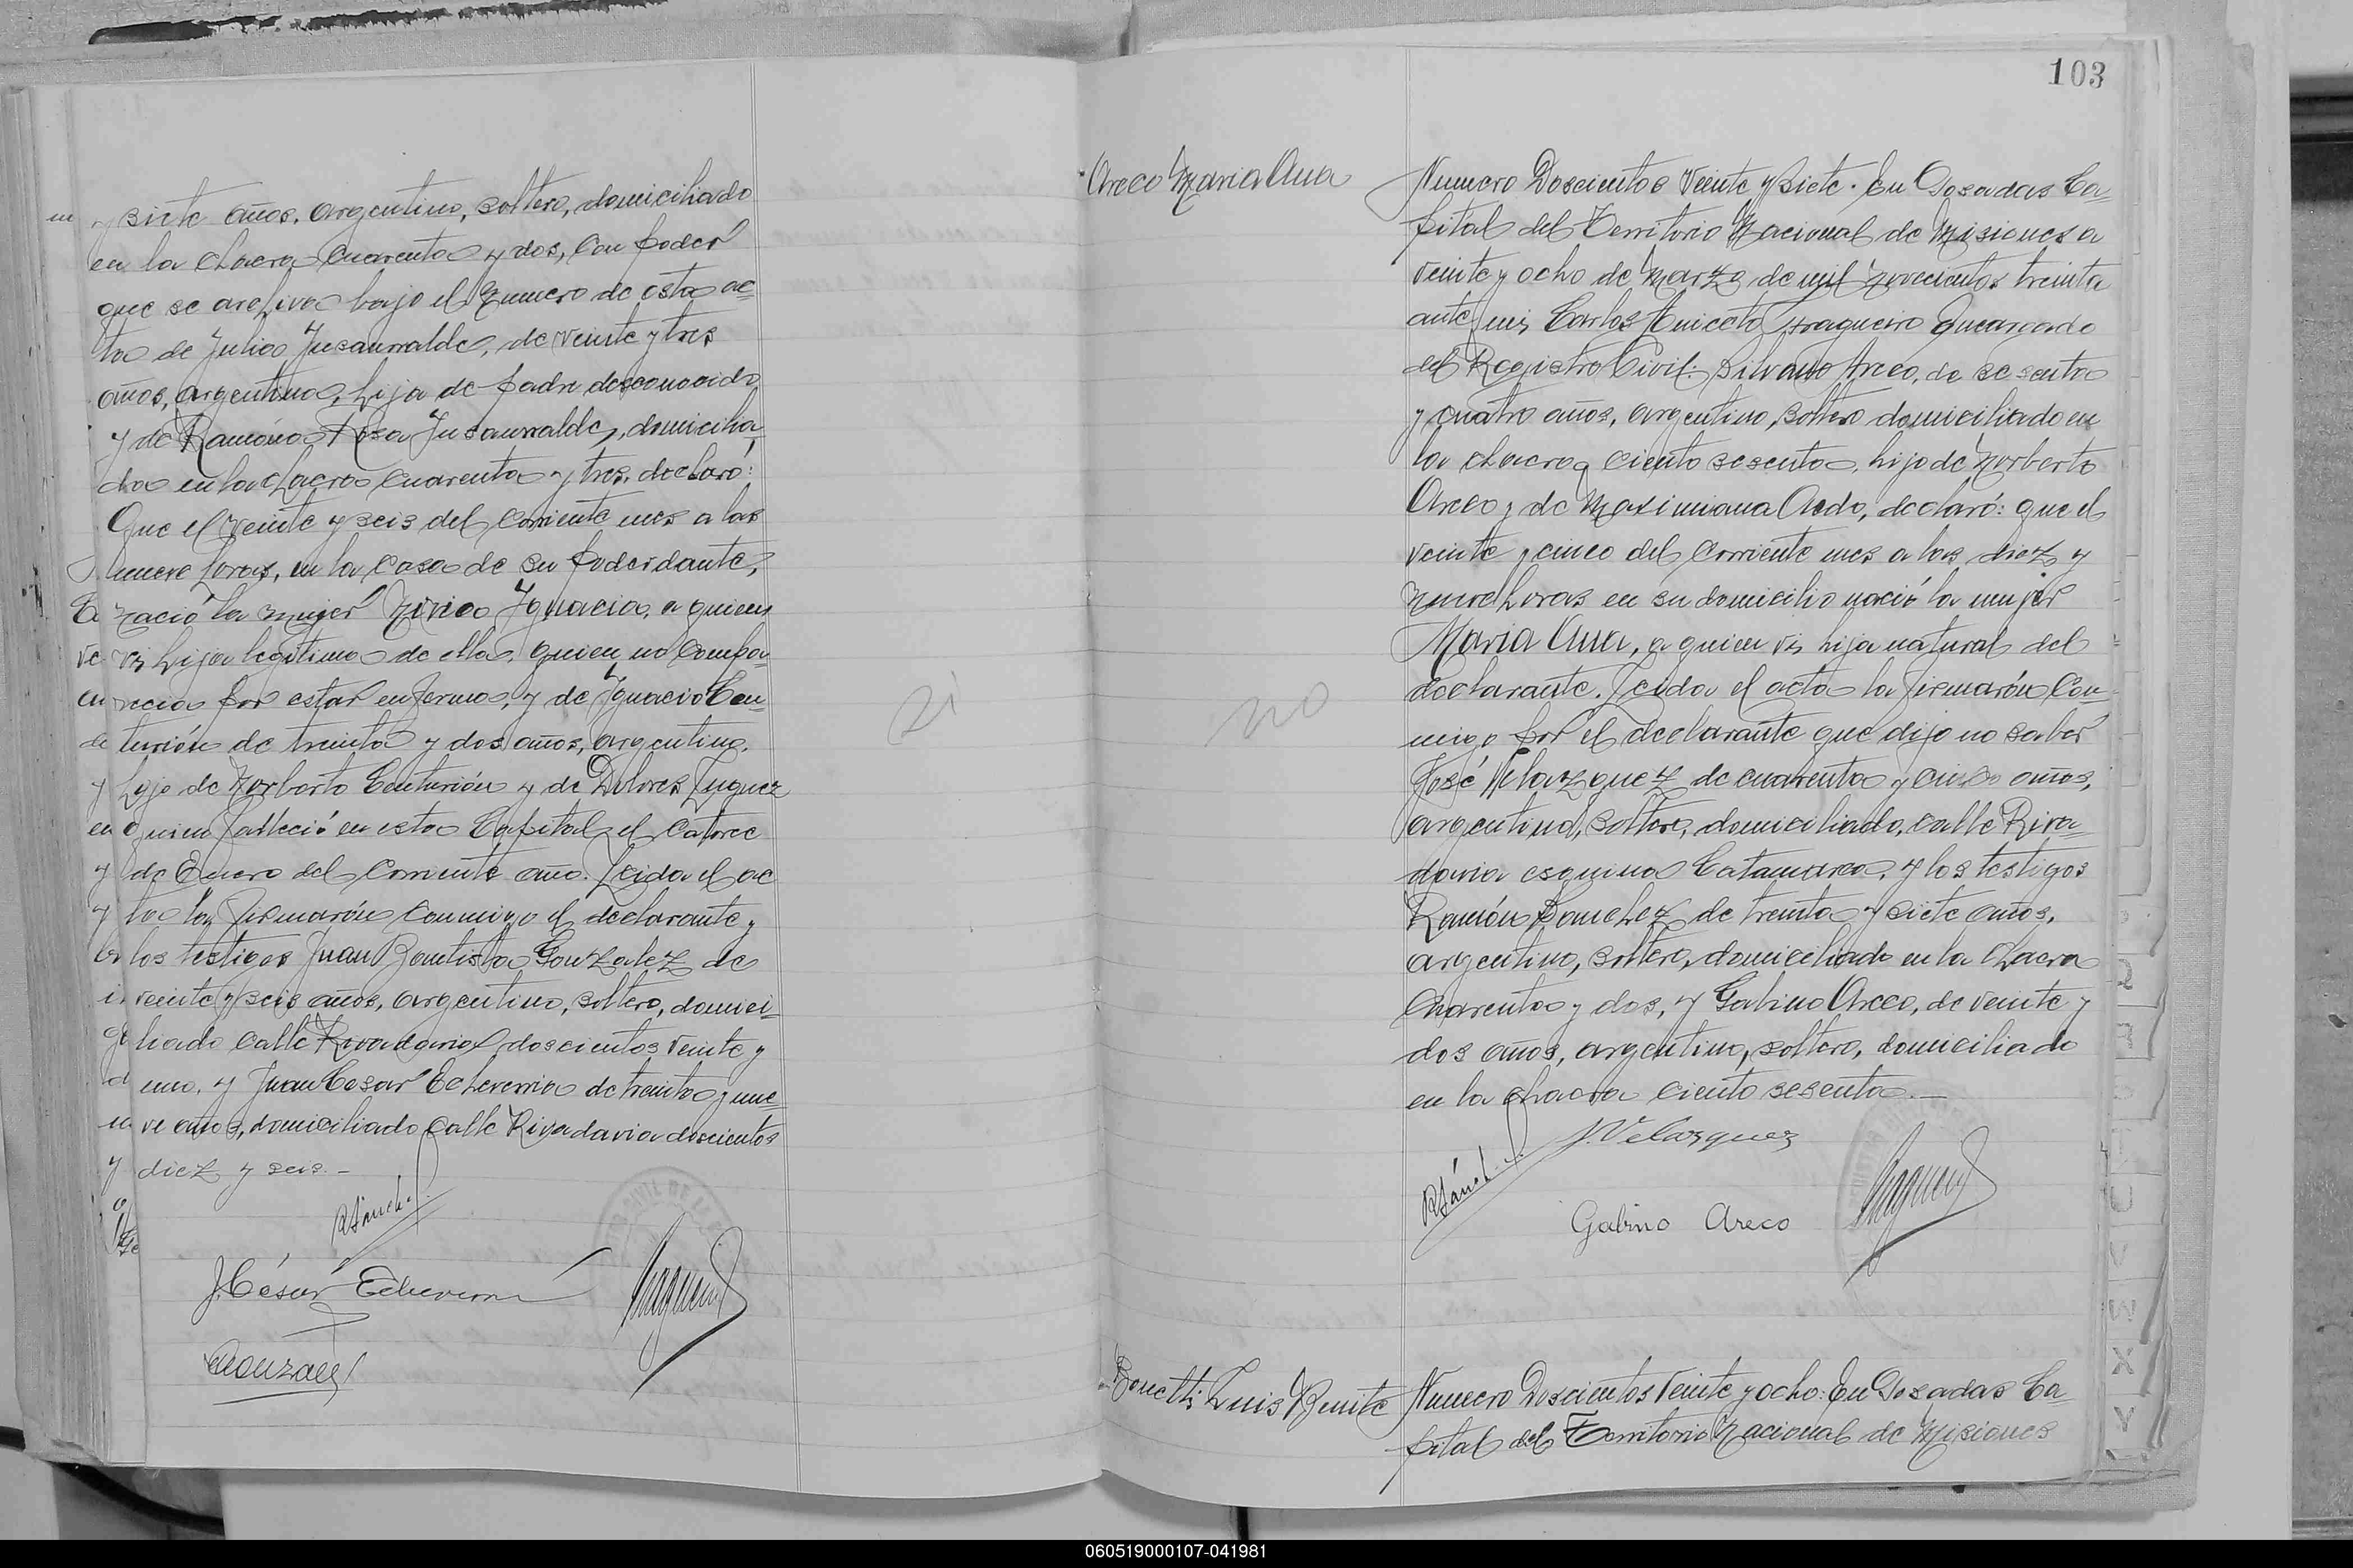 y siete años, argentino, soltero, domiciliado
en la chacra cuarenta y dos, con poder
que se archiva bajo el numero de esta ac-
ta de Julia Insaurralde, de veinte y tres
años, argentina, hija de padre desconocido
y de Ramona Rosa Insaurralde, domicilia-
da en la chacra cuarenta y tres, declaró:
Que el veinte y seis del corriente mes a las
nueve horas, en la casa de su poderdante,
nació la mujer Ignacia, a quien
vi, hija legitima de ella, quien no compa-
recia por estar enferma, y de Ignacio Cen-
turión de treinta y dos años, argentino,
hijo de Norberto Centurión y de Dolores
quien falleció en esta Capital el catorce
de Enero del corriente año. Leida el ac
ta la firmarón conmigo el declarante y
los testigos Juan Bautista Gonzalez de
veinte y seis años, argentino, soltero, domici-
liado calle Rivadavia doscientos veinte y
uno, y Juan Cesar Echeverria de treinta y nue-
ve años, domiciliado calle Rivadavia doscientos
diez y seis.-
R Sánchez
J. César Echeverria
Gonzalez
si
103
Areco Maria Ana
Numero Doscientos Veinte y Siete. En Posadas Ca-
pital del Territorio Nacional de Misiones a
veinte y ocho de Marzo de mil novecientos treinta
ante mi, Carlos Aniceto Fragueiro Encargado
del Registro Civil: Silvano Areco, de sesenta
y cuatro años, argentino, soltero domiciliado en
la chacra ciento sesenta, hijo de Norberto
Areco y de Maximiana Acdo, declaró: que el
veinte y cinco del corriente mes a las diez y
nueve horas en su domicilio nació la mujer
Maria Ana, a quien vi, hija natural del
declarante. Leida el acta la firmarón con-
migo por el declarante que dijo no saber
José Velazquez de cuarenta y cinco años,
argentino, soltero, domiciliado, calle Riva-
davia esquina Catamarca, y los testigos
Ramón Sanchez de treinta y siete años,
argentino, soltero, domiciliado en la chacra
cuarenta y dos, y Gabino Areco, de veinte y
dos años, argentino, soltero, domiciliado
en la chacra ciento sesenta.-
J. Velazquez
R Sánchez
Gabino Areco
no
Bonetti Luis Benito
Numero Doscientos Veinte y ocho: En Posadas Ca-
pital del Territorio Nacional de Misiones
060519000107-041981